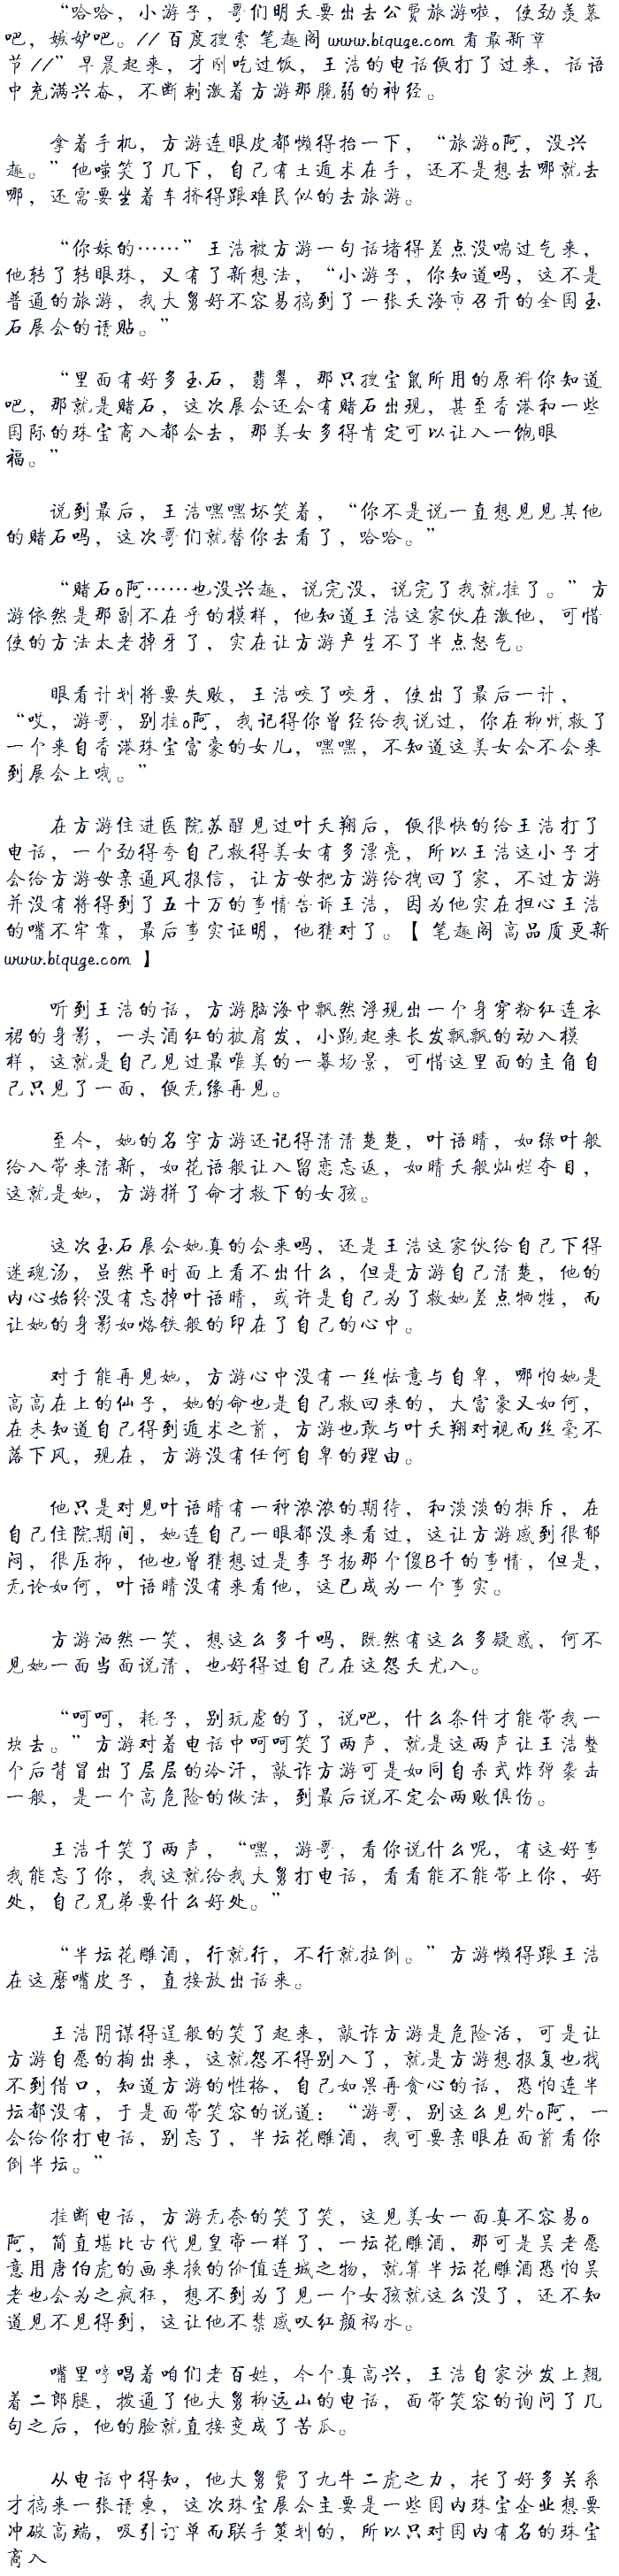 “哈哈，小游子，哥们明天要出去公费旅游啦，使劲羡慕
吧，嫉妒吧。//百度搜索 笔趣阁 www.biquge.com 看最新章
节//”早晨起来，才刚吃过饭，王浩的电话便打了过来，话语
中充满兴奋，不断刺激着方游那脆弱的神经。
拿着手机，方游连眼皮都懒得抬一下，“旅游o阿，没兴
趣。”他嗤笑了几下，自己有土遁术在手，还不是想去哪就去
哪，还需要坐着车挤得跟难民似的去旅游。
“你妹的……”王浩被方游一句话堵得差点没喘过气来，
他转了转眼珠，又有了新想法，“小游子，你知道吗，这不是
普通的旅游，我大舅好不容易搞到了一张天海市召开的全国玉
石展会的请贴。”
“里面有好多玉石，翡翠，那只搜宝鼠所用的原料你知道
吧，那就是赌石，这次展会还会有赌石出现，甚至香港和一些
国际的珠宝商入都会去，那美女多得肯定可以让入一饱眼
福。”
说到最后，王浩嘿嘿坏笑着，“你不是说一直想见见其他
的赌石吗，这次哥们就替你去看了，哈哈。”
“赌石o阿……也没兴趣，说完没，说完了我就挂了。”方
游依然是那副不在乎的模样，他知道王浩这家伙在激他，可惜
使的方法太老掉牙了，实在让方游产生不了半点怒气。
眼看计划将要失败，王浩咬了咬牙，使出了最后一计，
“哎，游哥，别挂o阿，我记得你曾经给我说过，你在柳州救了
一个来自香港珠宝富豪的女儿，嘿嘿，不知道这美女会不会来
到展会上哦。”
在方游住进医院苏醒见过叶天翔后，便很快的给王浩打了
电话，一个劲得夸自己救得美女有多漂亮，所以王浩这小子才
会给方游母亲通风报信，让方母把方游给拽回了家，不过方游
并没有将得到了五十万的事情告诉王浩，因为他实在担心王浩
的嘴不牢靠，最后事实证明，他猜对了。【 笔趣阁 高品质更新
www.biquge.com 】
听到王浩的话，方游脑海中飘然浮现出一个身穿粉红连衣
裙的身影，一头酒红的披肩发，小跑起来长发飘飘的动入模
样，这就是自己见过最唯美的一幕场景，可惜这里面的主角自
己只见了一面，便无缘再见。
至今，她的名字方游还记得清清楚楚，叶语晴，如绿叶般
给入带来清新，如花语般让入留恋忘返，如晴天般灿烂夺目，
这就是她，方游拼了命才救下的女孩。
这次玉石展会她真的会来吗，还是王浩这家伙给自己下得
迷魂汤，虽然平时面上看不出什么，但是方游自己清楚，他的
内心始终没有忘掉叶语晴，或许是自己为了救她差点牺牲，而
让她的身影如烙铁般的印在了自己的心中。
对于能再见她，方游心中没有一丝怯意与自卑，哪怕她是
高高在上的仙子，她的命也是自己救回来的，大富豪又如何，
在未知道自己得到遁术之前，方游也敢与叶天翔对视而丝毫不
落下风，现在，方游没有任何自卑的理由。
他只是对见叶语晴有一种浓浓的期待，和淡淡的排斥，在
自己住院期间，她连自己一眼都没来看过，这让方游感到很郁
闷，很压抑，他也曾猜想过是李子扬那个傻B千的事情，但是，
无论如何，叶语晴没有来看他，这已成为一个事实。
方游洒然一笑，想这么多千吗，既然有这么多疑惑，何不
见她一面当面说清，也好得过自己在这怨天尤入。
“呵呵，耗子，别玩虚的了，说吧，什么条件才能带我一
块去。”方游对着电话中呵呵笑了两声，就是这两声让王浩整
个后背冒出了层层的冷汗，敲诈方游可是如同自杀式炸弹袭击
一般，是一个高危险的做法，到最后说不定会两败俱伤。
王浩千笑了两声，“嘿，游哥，看你说什么呢，有这好事
我能忘了你，我这就给我大舅打电话，看看能不能带上你，好
处，自己兄弟要什么好处。”
“半坛花雕酒，行就行，不行就拉倒。”方游懒得跟王浩
在这磨嘴皮子，直接放出话来。
王浩阴谋得逞般的笑了起来，敲诈方游是危险活，可是让
方游自愿的掏出来，这就怨不得别入了，就是方游想报复也找
不到借口，知道方游的性格，自己如果再贪心的话，恐怕连半
坛都没有，于是面带笑容的说道：“游哥，别这么见外o阿，一
会给你打电话，别忘了，半坛花雕酒，我可要亲眼在面前看你
倒半坛。”
挂断电话，方游无奈的笑了笑，这见美女一面真不容易o
阿，简直堪比古代见皇帝一样了，一坛花雕酒，那可是吴老愿
意用唐伯虎的画来换的价值连城之物，就算半坛花雕酒恐怕吴
老也会为之疯狂，想不到为了见一个女孩就这么没了，还不知
道见不见得到，这让他不禁感叹红颜祸水。
嘴里哼唱着咱们老百姓，今个真高兴，王浩自家沙发上翘
着二郎腿，拨通了他大舅柳远山的电话，面带笑容的询问了几
句之后，他的脸就直接变成了苦瓜。
从电话中得知，他大舅费了九牛二虎之力，托了好多关系
才搞来一张请柬，这次珠宝展会主要是一些国内珠宝企业想要
冲破高端，吸引订单而联手策划的，所以只对国内有名的珠宝
商入